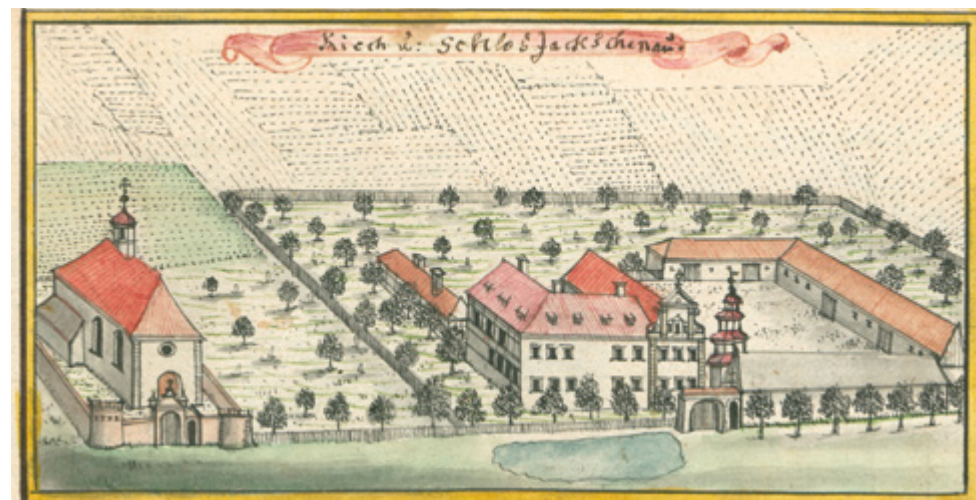 Kirch u: Schlos Jackschenau.